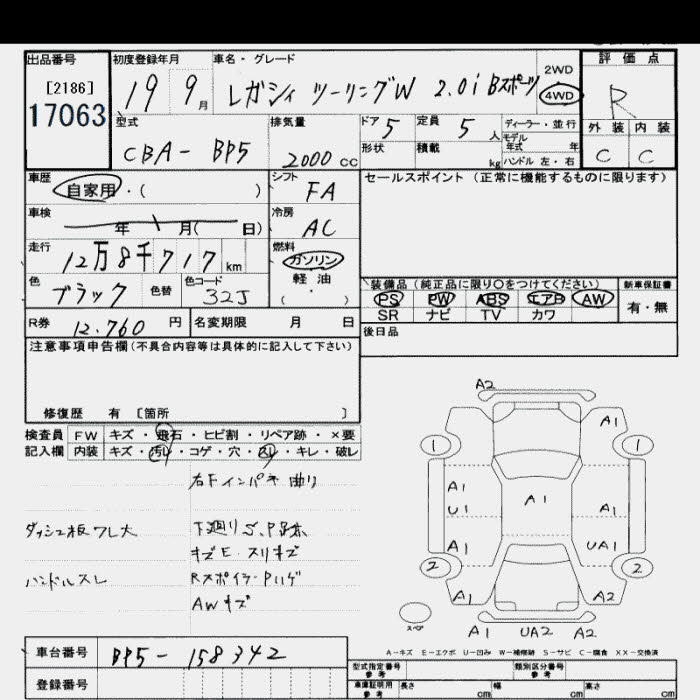 出品番号 初度登録年月 車名・グレード 2WD 評価点
[2186] 19 9月 レガシィ ツーリングW 2.0i Bスポーツ 4WD R
17063 型式 排気量 ドア 定員 ディーラー・並行 外装 内装
CBA- BP5 2000 cc 5 5人 モデル年式 年
形状 積載 kg ハンドル 左・右 C C
車歴 自家用・( ) シフト FA セールスポイント(正常に機能するものに限ります)
車検 年 月( 日) 冷房 AC
走行 12万8千717km 燃料 ガソリン
軽油
色 ブラック 色替 色コード 32J ( ・ ) 装備品(純正品に限り○をつけてください) 新車保証書
PS PW ABS エアB AW 有・無
R券 12.760 円 名変期限 月 日 SR ナビ TV カワ
注意事項申告欄(不具合内容等は具体的に記入して下さい) 後日品
修復歴 有 [箇所 ]
検査員 FW キズ・飛石・ヒビ割・リペア跡・×要
記入欄 内装 キズ・汚レ・コゲ・穴・スレ・キレ・破レ
右Fインパネ曲り
ダッシュ板ワレ大 下廻りS、P跡
キズE スリキズ
ハンドルスレ RスポイラーPハゲ
AWキズ
A2
A1
1 1
A1 A1 A1
U1
A1 UA1
2 2
A1 A2
スペア A1 UA2 A2
A-キズ E-エクボ U-凹み W-補修跡 S-サビ C-腐食 XX-交換済
車台番号 BP5-158342 型式指定番号 参考 類別区分番号 参考
登録番号 車庫証明用 参考 長さ cm 幅 cm 高さ cm